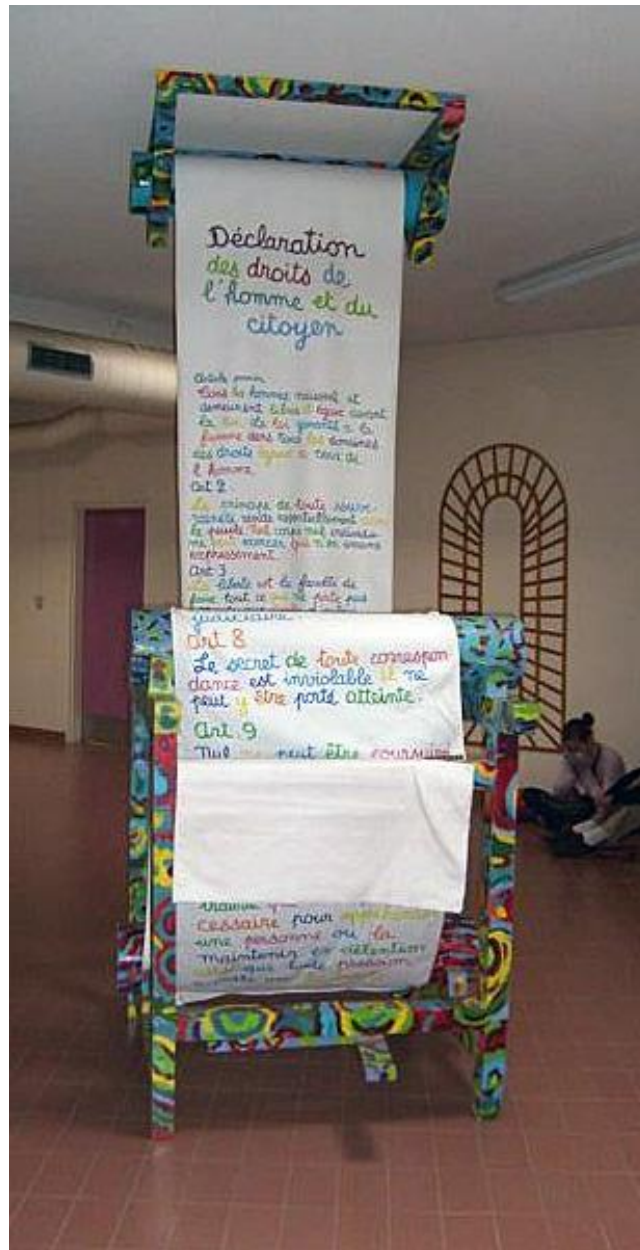 Déclaration
des droits de
l'homme et du
citoyen
Article premier
Tous les hommes naissent et
demeurent libres et égaux devant
la loi. La loi garantit à la
femme dans tous les domaines
des droits égaux à ceux de
l'homme
Art 2
Le principe de toute souve-
raineté réside essentiellement dans
le peuple Nul corps nul individu
ne peut exercer qui n'en émane
expressément.
Art 3
La liberté est la faculté de
faire tout ce qui ne porte pas
judiciaire.
Art 8
Le secret de toute correspon
dance est inviolable il ne
peut y être porté atteinte.
Art 9
Nul ne peut être
cessaire pour appréhender
une personne ou la
maintenir en détention
que toute pression